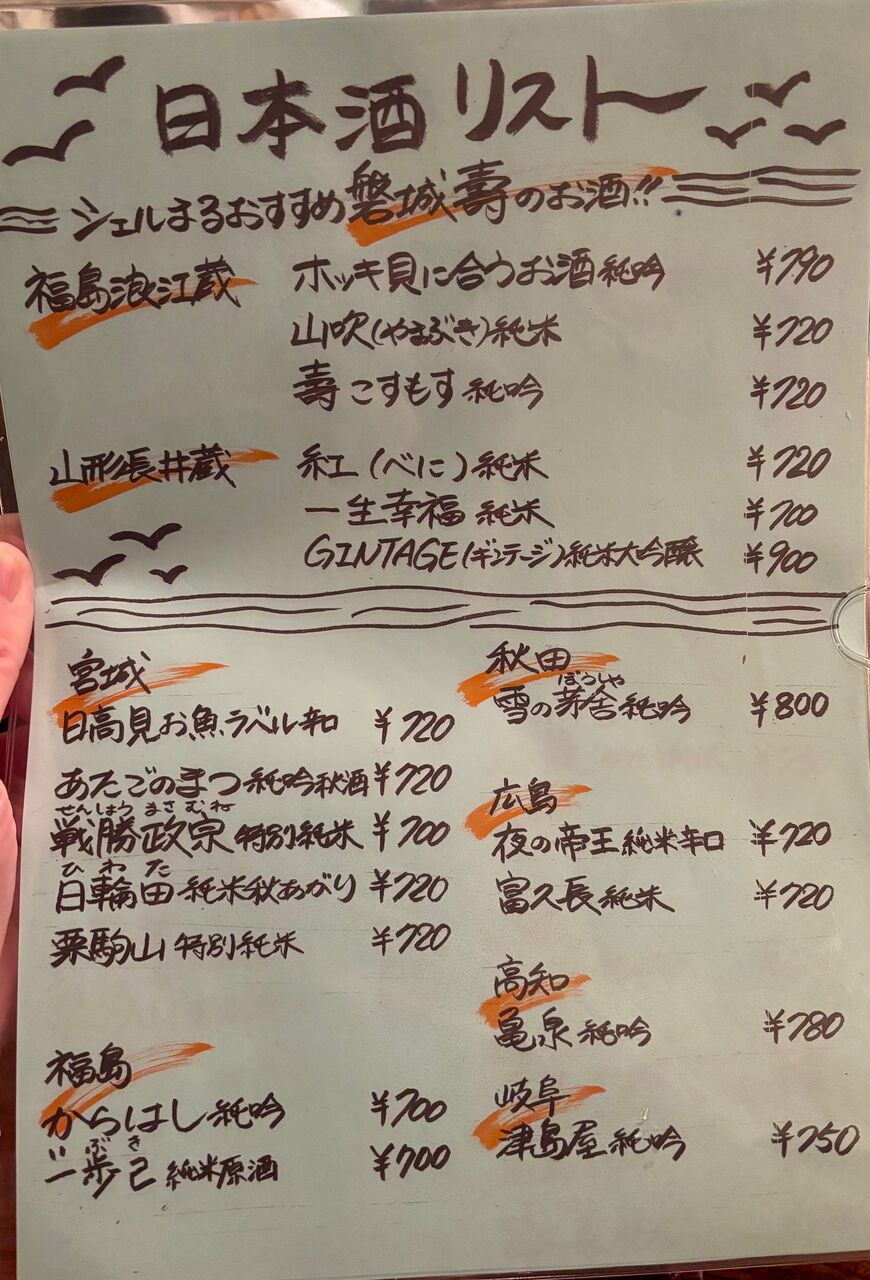 日本酒リスト
シェルまるおすすめ磐城壽のお酒!!
福島浪江蔵 ホッキ貝に合うお酒 純吟 ¥790
山吹(やまぶき)純米 ¥720
壽 こすもす 純吟 ¥720
山形長井蔵 紅(べに)純米 ¥720
一生幸福 純米 ¥700
GINTAGE(ギンテージ)純米大吟醸 ¥900
宮城
日高見お魚ラベル辛口 ¥720
あたごのまつ 純吟秋酒 ¥720
せんしょう まさむね
戦勝政宗 特別純米 ¥700
ひわた
日輪田 純米秋あがり ¥720
栗駒山 特別純米 ¥720
福島
からはし 純吟 ¥700
いぶき
一歩己 純米原酒 ¥700
秋田
ぼうしゃ
雪の茅舎 純吟 ¥800
広島
夜の帝王 純米辛口 ¥720
富久長 純米 ¥720
高知
亀泉 純吟 ¥780
岐阜
津島屋 純吟 ¥750